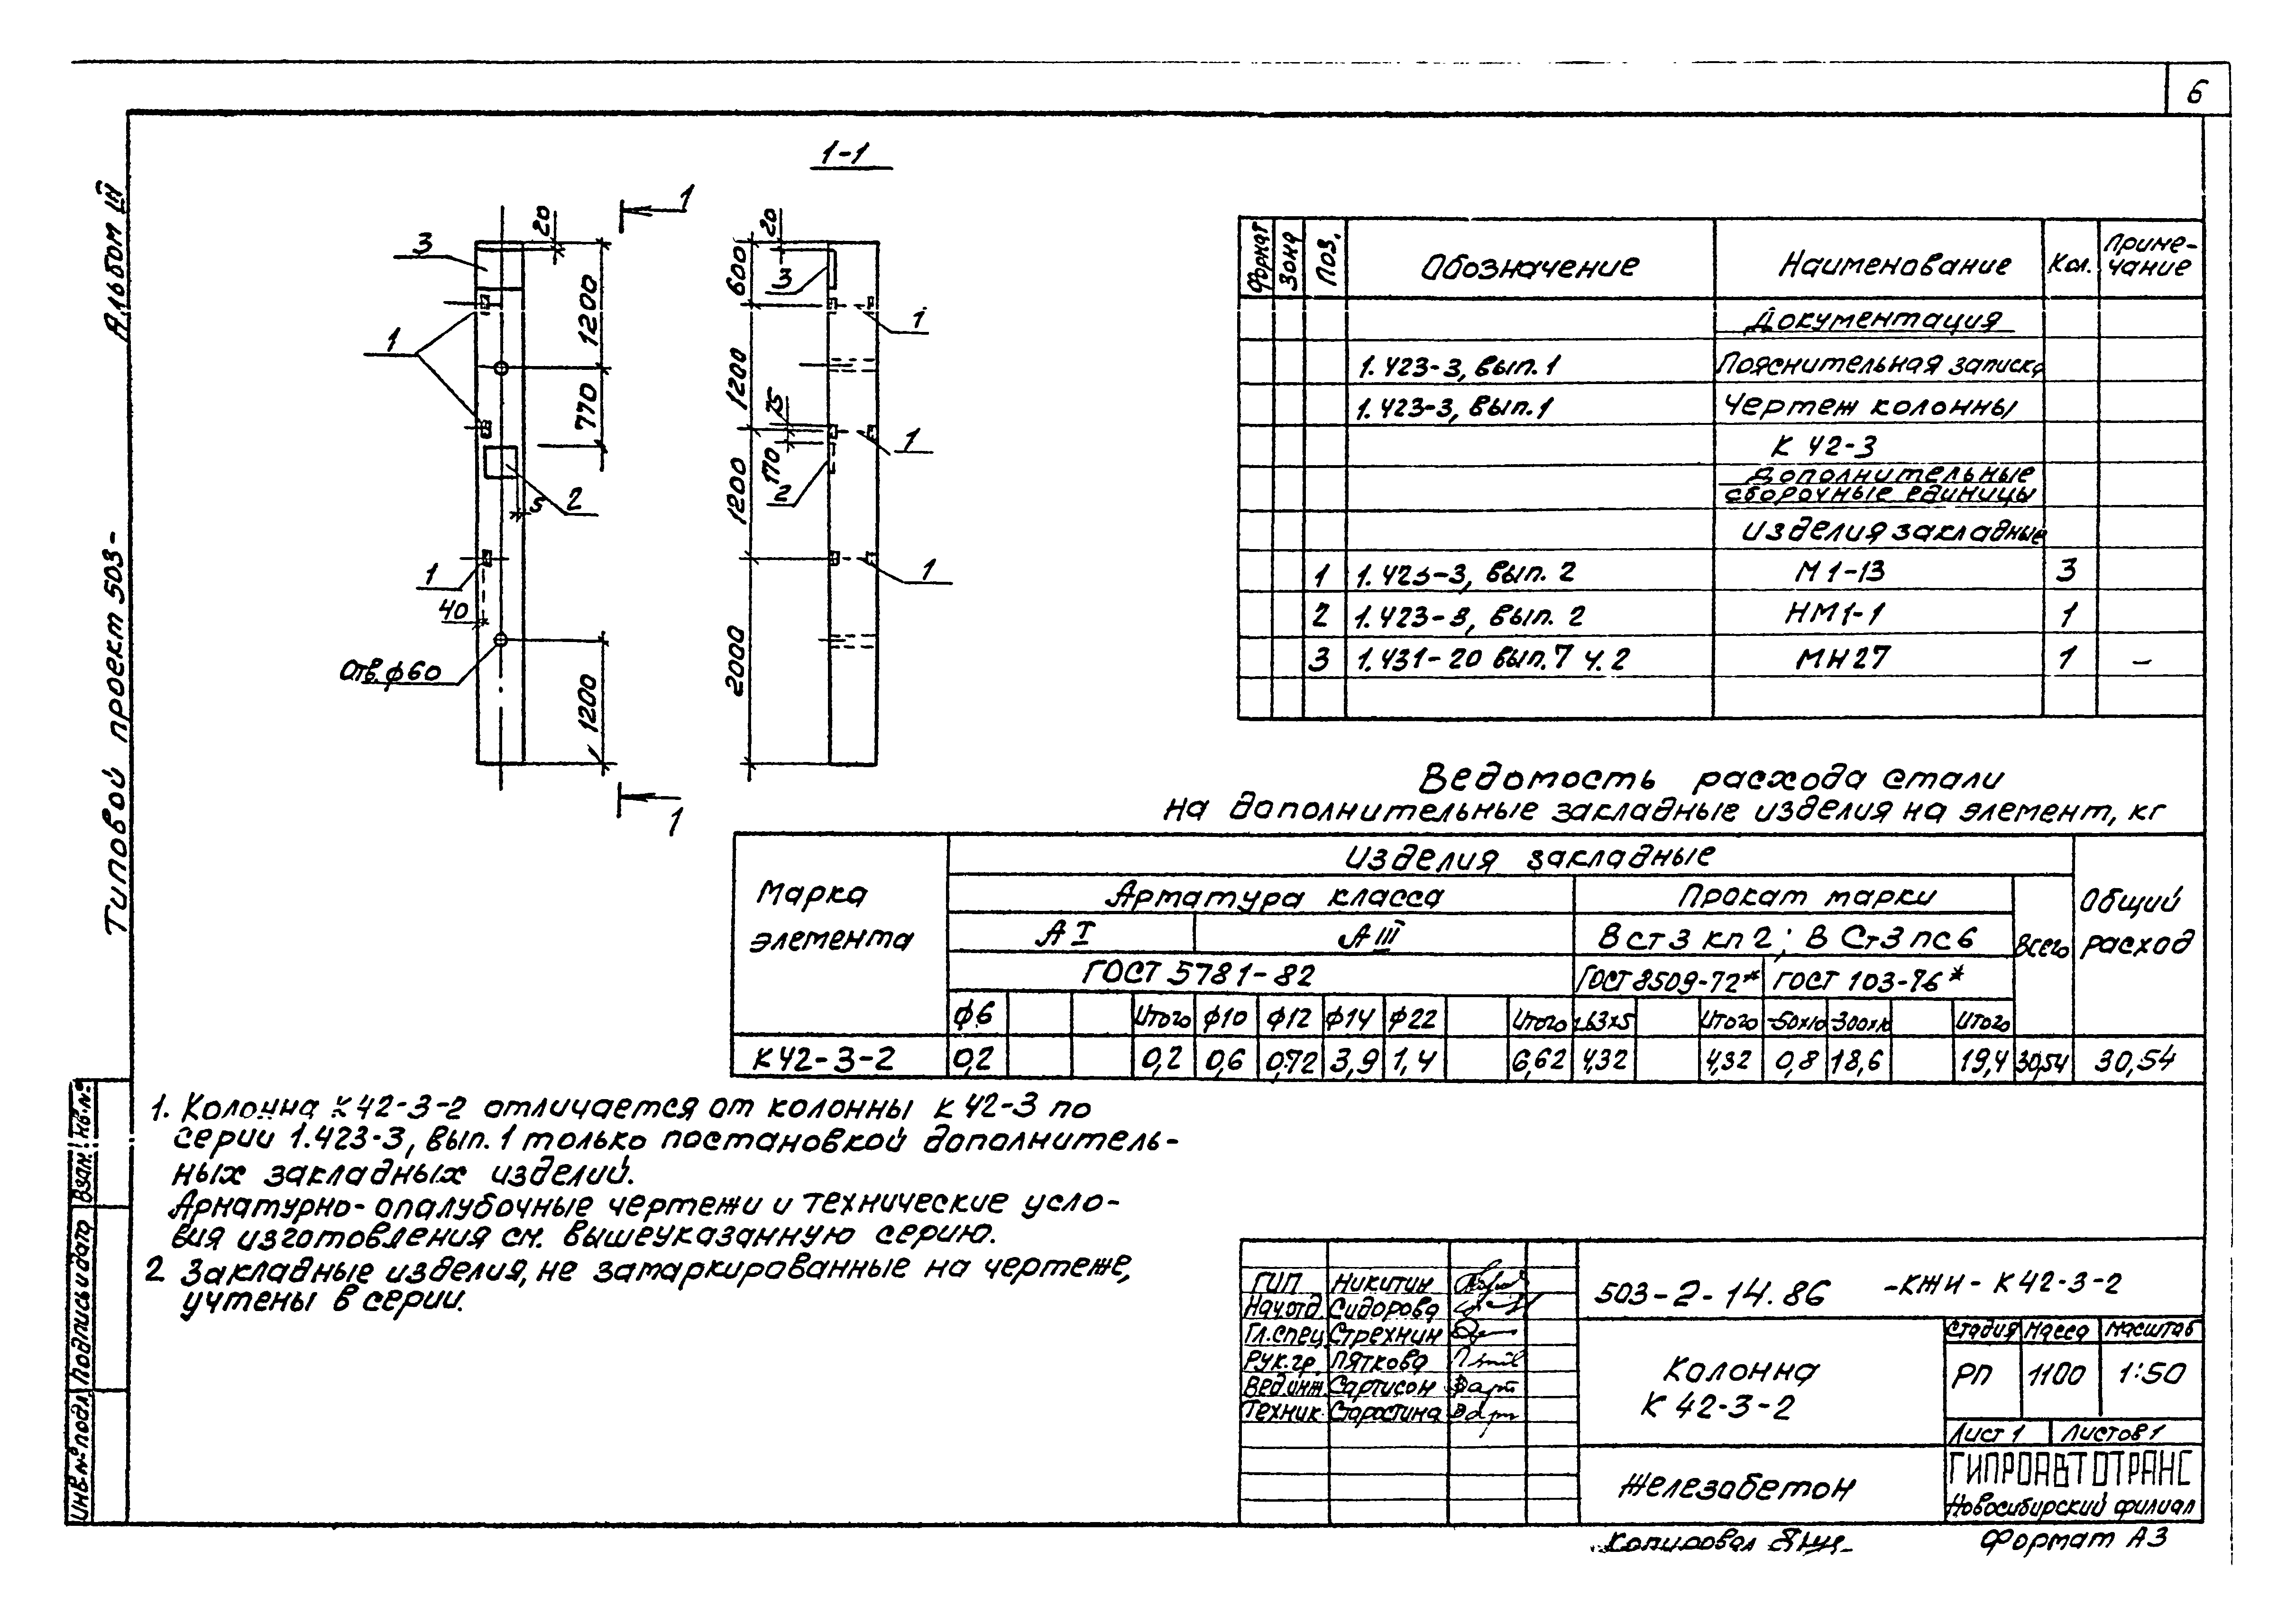 6
Альбом III
Типовой проект 503-
Взам. инв. №
Подпись и дата
Инв. № подл.
1-1
1
20
3
1200
1
770
5
2
1
40
Отв. ф60
1200
1
20
600
3
1
1200
75
1
170
2
1200
1
2000
Формат Зона Поз. Обозначение Наименование Кол. Приме-
чание
Документация
1.423-3, вып.1 Пояснительная записка
1.423-3, вып.1 Чертеж колонны
К 42-3
Дополнительные
сборочные единицы
Изделия закладные
1 1.423-3, вып. 2 М1-13 3
2 1.423-3, вып. 2 НМ1-1 1
3 1.431-20 вып.7 ч.2 МН27 1 –
Ведомость расхода стали
на дополнительные закладные изделия на элемент, кг
Марка элемента Изделия закладные Общий расход
Арматура класса Прокат марки Всего
А I А III В ст3 кп2; В Ст3 пс6
ГОСТ 5781-82 ГОСТ 8509-72* ГОСТ 103-76*
ф6 Итого ф10 ф12 ф14 ф22 Итого L63х5 Итого -50х10 -300х10 Итого
К42-3-2 0,2 0,2 0,6 0,72 3,9 1,4 6,62 4,32 4,32 0,8 18,6 19,4 30,54 30,54
1. Колонна К42-3-2 отличается от колонны К 42-3 по
серии 1.423-3, вып. 1 только постановкой дополнитель-
ных закладных изделий.
Арматурно-опалубочные чертежи и технические усло-
вия изготовления см. вышеуказанную серию.
2 Закладные изделия, не замаркированные на чертеже,
учтены в серии.
ГИП Никитин
Нач.отд. Сидорова
Гл.спец. Стрехнин
Рук.гр. Пяткова
Вед.инж. Сартисон
Техник Старостина
503-2-14.86 -КЖИ-К42-3-2
Колонна
К 42-3-2
Стадия Масса Масштаб
РП 1100 1:50
Лист 1 Листов 1
Железобетон
ГИПРОАВТОТРАНС
Новосибирский филиал
Копировал
Формат А3